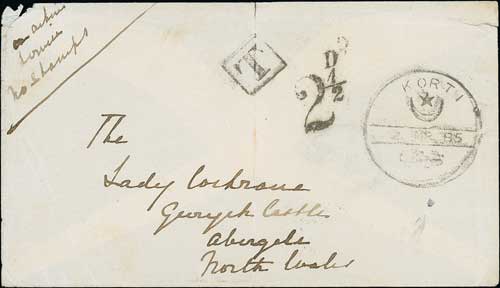 on active
service
no Stamps
T
2 D 1/2
KORTI
85
The
Lady Cochrane
Gwrych Castle
Abergele
North Wales